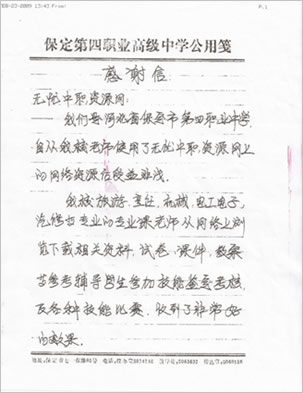 FEB-23-2009 13:43 From:
P.1
保定第四职业高级中学公用笺
感谢信
无忧中职资源网:
我们是河北省保定市第四职业中学,
自从我校老师使用了无忧中职资源网上
的网络资源后受益匪浅。
我校旅游、烹饪、机械、电工电子、
汽修等专业的专业课老师从网络上浏
览下载相关资料、试卷、课件、教案
等参考辅导学生参加技能鉴定考核
及各种技能比赛,收到了非常好
的效果。